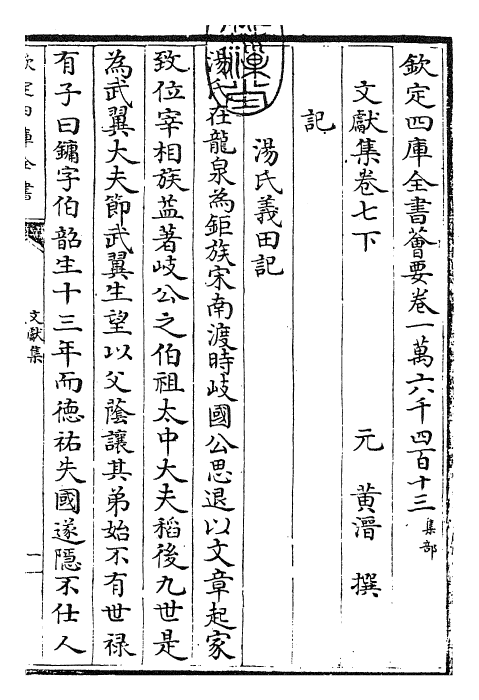 欽定四庫全書薈要卷一萬六千四百十三 集部
文獻集卷七下
元 黃溍 撰
記
湯氏義田記
湯氏在龍泉為鉅族宋南渡時岐國公思退以文章起家
致位宰相族益著岐公之伯祖太中大夫稻後九世是
為武翼大夫節武翼生望以父蔭讓其弟始不有世禄
有子曰鏞字伯韶生十三年而德祐失國遂隠不仕人
欽定四庫全書
文獻集
一